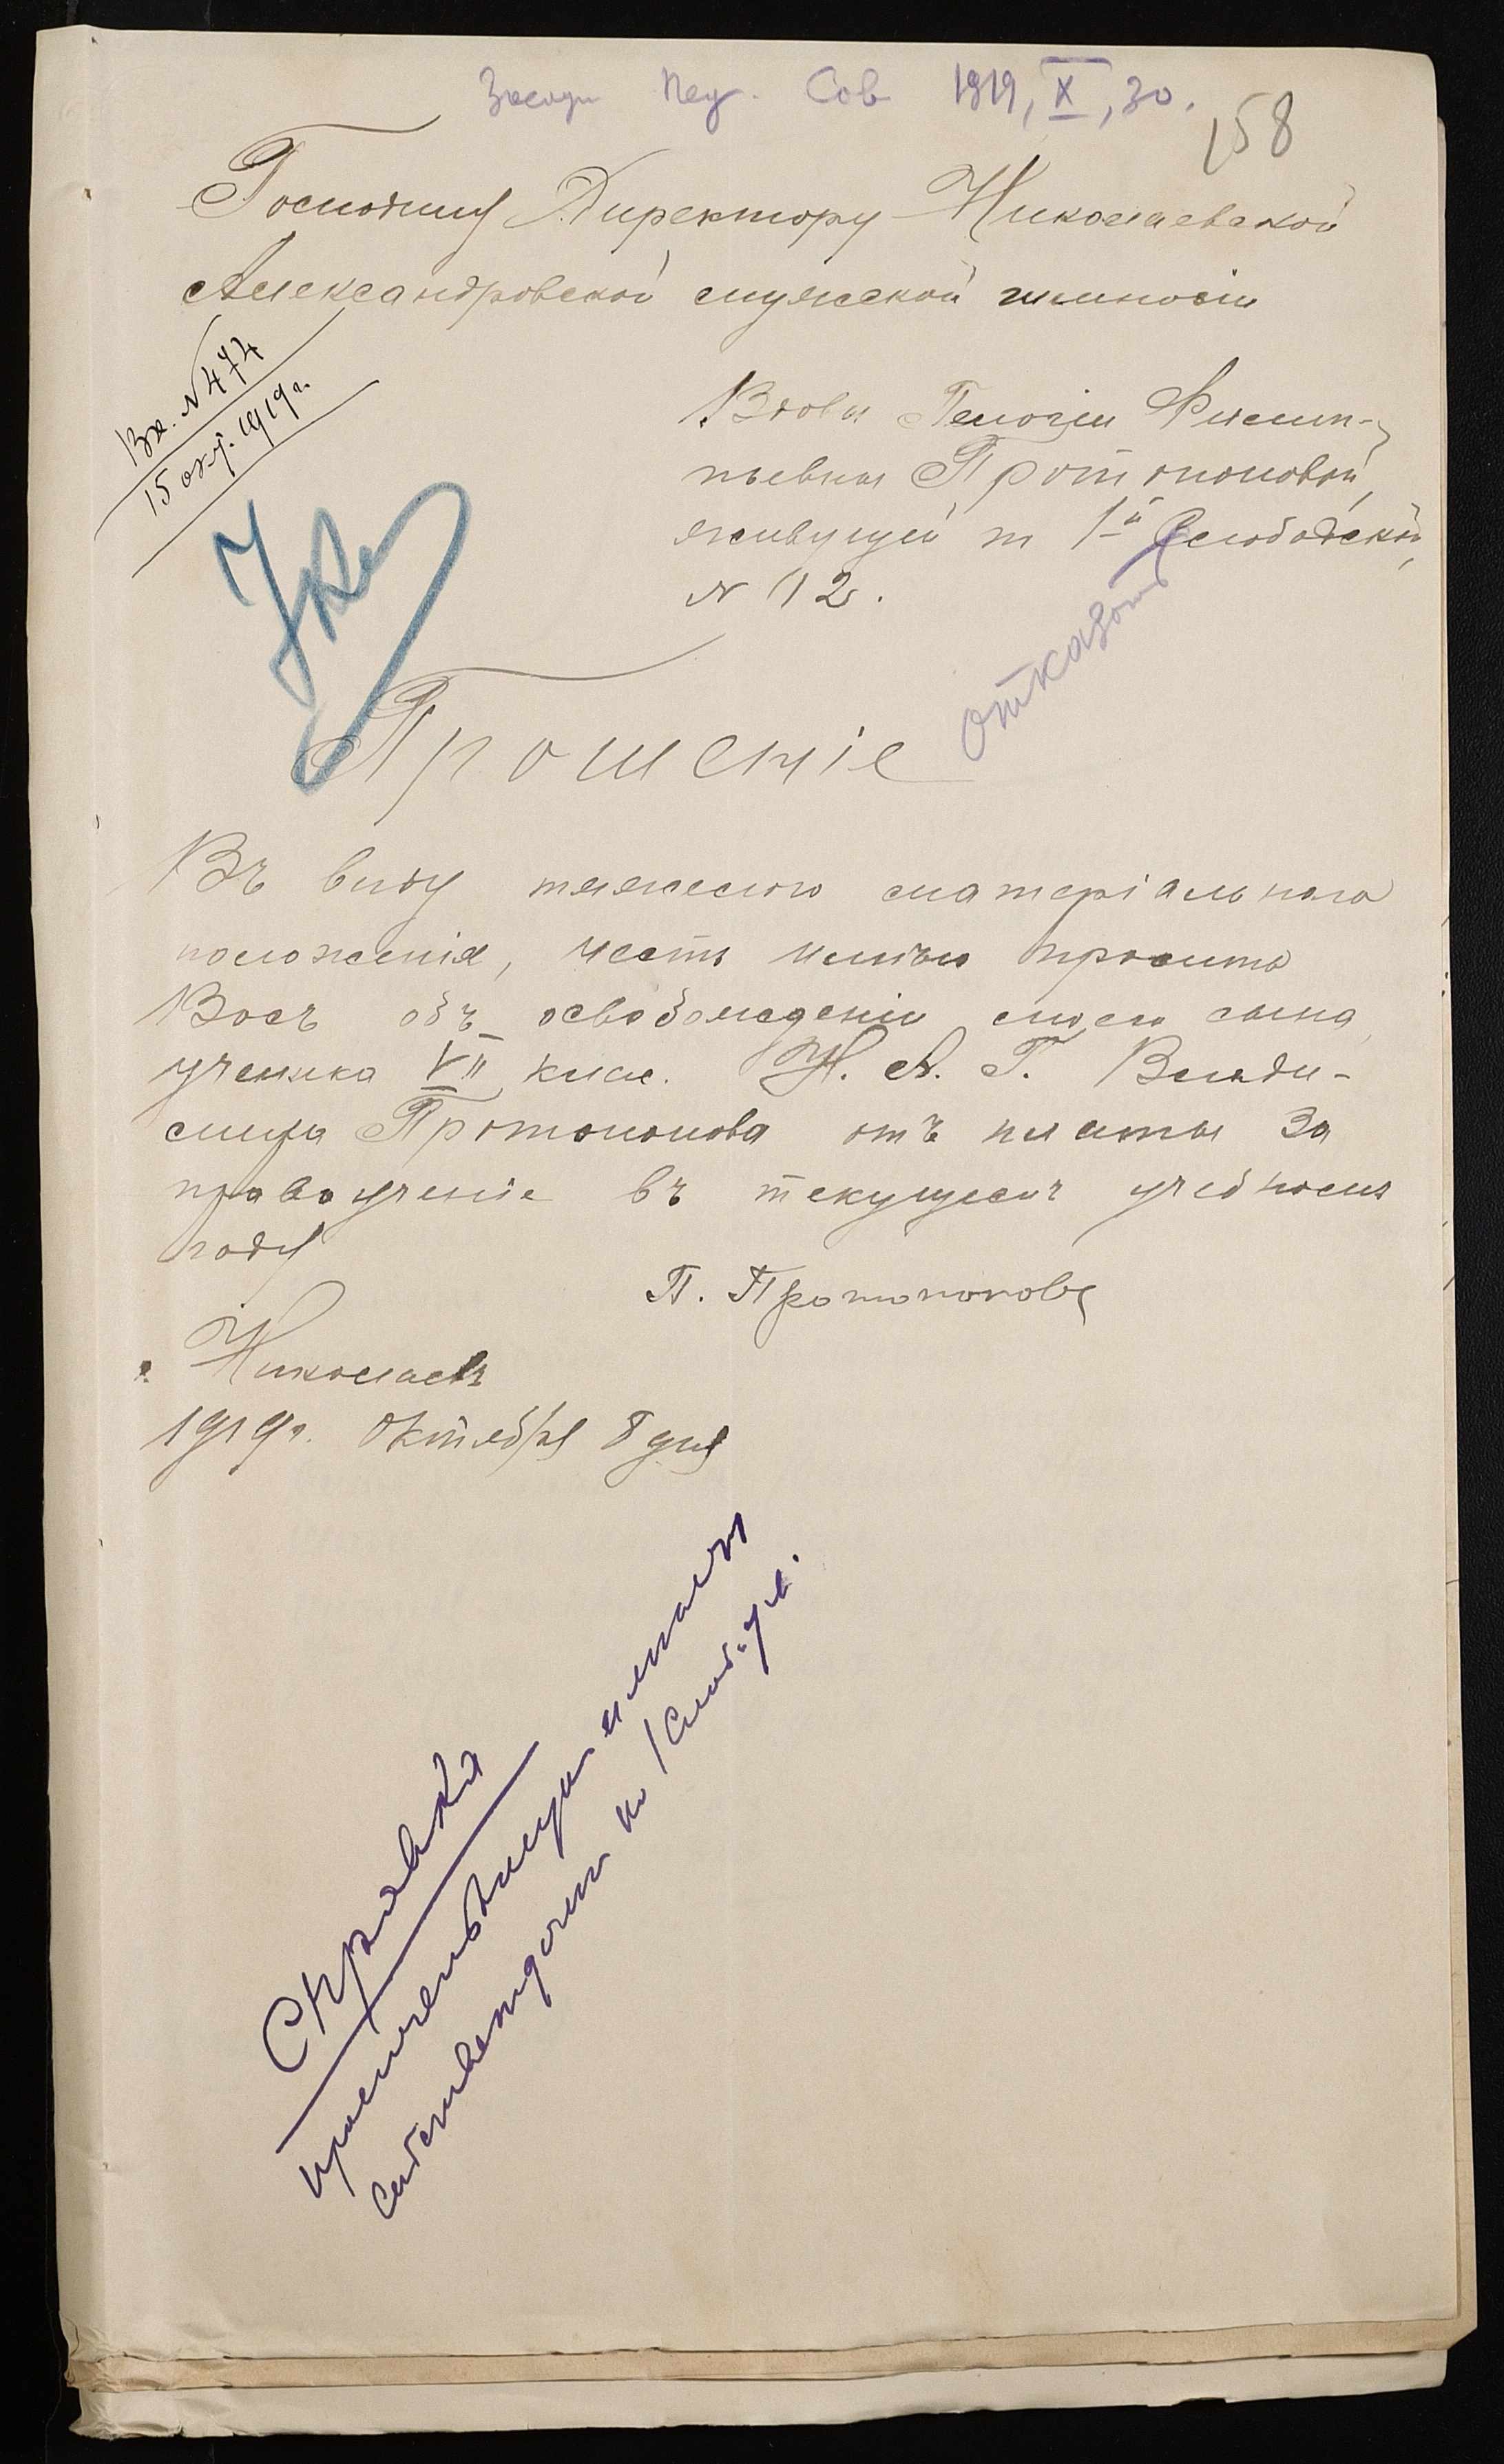 Засед Пед. Сов 1919, X, 30.
158
Господину Директору Николаевской
Александровской мужской гимназіи
Вх. № 474
15 окт. 1919 г.
Вдовы Пелагіи Филип-
пьевны Протопоповой,
живущей по 1й Слободской,
№ 12.
отказать
Прошеніе
Въ виду тяжелого матеріальнаго
положенія, честь имѣю просить
Васъ объ освобожденіи моего сына
ученика VII клас. Н. А. Г. Влади-
мира Протопопова отъ платы за
правоученіе въ текущемъ учебномъ
году
П. Протопопова
г. Николаевъ
1919 г. Октября 8 дня
Справка
по 1 Слоб. ул.